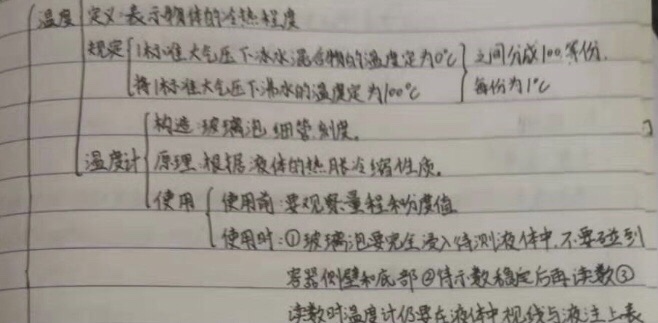 温度 定义:表示物体的冷热程度
规定 1标准大气压下冰水混合物的温度定为0℃ 之间分成100等份,
将1标准大气压下沸水的温度定为100℃ 每份为1℃
构造:玻璃泡 细管 刻度。
温度计 原理:根据液体的热胀冷缩性质。
使用 使用前:要观察量程和分度值
使用时:①玻璃泡要完全浸入待测液体中,不要碰到
容器侧壁和底部②待示数稳定后再读数③
读数时温度计仍要在液体中视线与液注上表